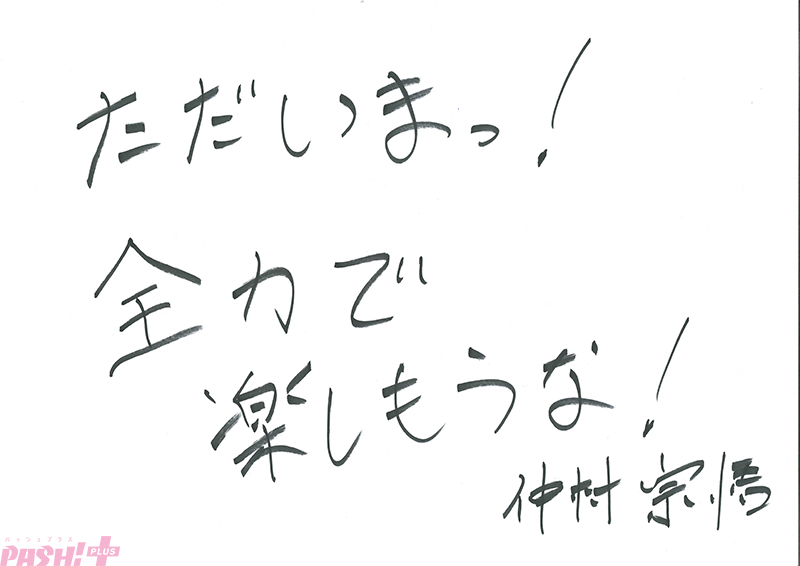 ただいまっ!
全力で
楽しもうな!
仲村宗悟
パッシュプラス
PASH!+ PLUS